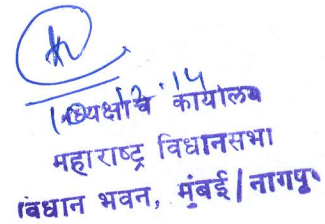 अध्यक्षांचे कार्यालय
महाराष्ट्र विधानसभा
विधान भवन, मुंबई/नागपूर